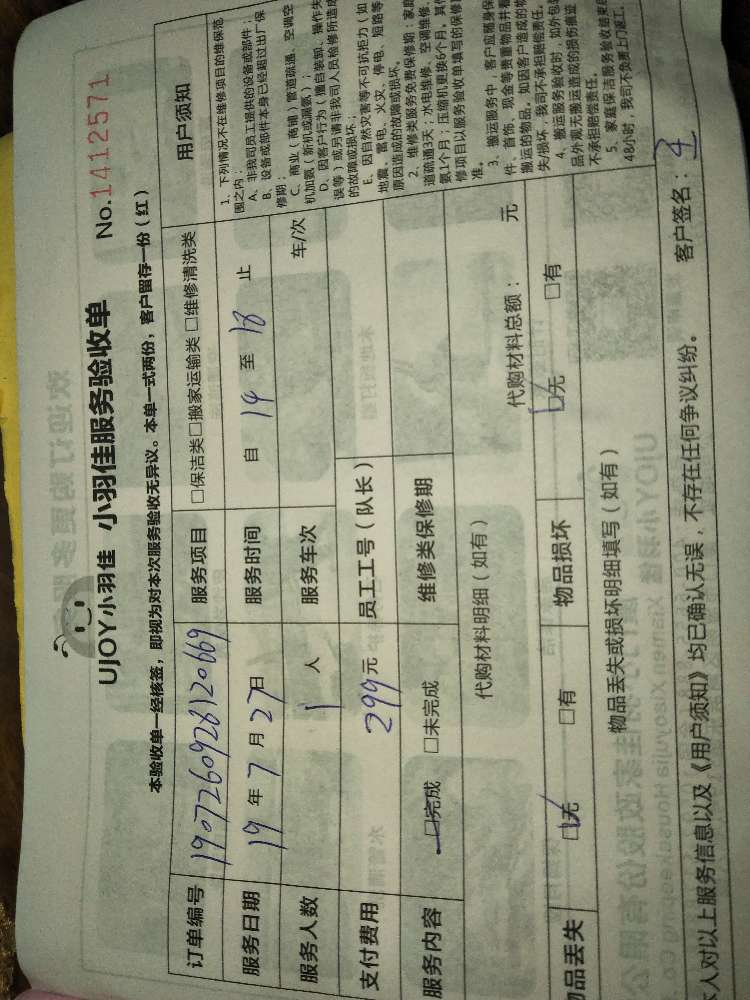 UJOY小羽佳 小羽佳服务验收单 No.1412571
本验收单一经核签，即视为对本次服务验收无异议。本单一式两份，客户留存一份（红）
订单编号 190726092812066 9 服务项目 □保洁类□搬家运输类 □维修清洗类
服务日期 19 年 7 月 27 日 服务时间 自 14 至 18 止
服务人数 1 人 服务车次 车/次
支付费用 299元 员工工号（队长）
服务内容 □完成 □未完成 维修类保修期
代购材料明细（如有） 代购材料总额： 元
物品丢失 □无 □有 物品损坏 □无 □有
物品丢失或损坏明细填写（如有）
用户须知
1、下列情况不在维修项目的维保范
围之内：
A、非我司员工提供的设备或部件；
B、设备或部件本身已经超过出厂保
修期；
C、商业（商铺）管道疏通、空调空
机加氨（新机或漏氨）；
D、因客户行为（擅自装卸、操作失
误等）或另请非我司人员检修所造成
的故障或损坏；
E、因自然灾害等不可抗拒力（如
地震、雷电、火灾、停电、短路等
原因造成的故障或损坏。
2、维修类服务免费保修期：家庭
道疏通3天；水电维修、空调维修、
氨1个月；压缩机更换6个月，其他
修项目以服务验收单填写的保修期
准。
3、搬运服务中，客户应随身保
件、首饰、现金等贵重物品并看
搬运的物品，如因客户造成的物
失/损坏，我司不承担赔偿责任。
4、搬运服务验收时，如外包装
品外观无搬运造成的损伤痕迹
不承担赔偿责任。
5、家庭保洁服务验收结束超
48小时，我司不负责上门返工。
人对以上服务信息以及《用户须知》均已确认无误，不存在任何争议纠纷。 客户签名：